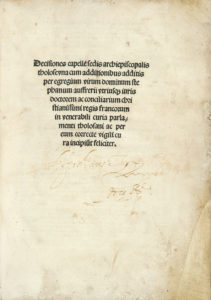 Decisiones capelle sedis archiepiscopalis
tholose vna cum additionibus additis
per egregium virum dominum ste
phanum auffrerii vtriusq; iuris
doctorem ac conciliarium chri
stianissimi regis francorum
in venerabili curia parla
menti tholosani ac per
eum correcte vigili cu
ra incipiunt feliciter.